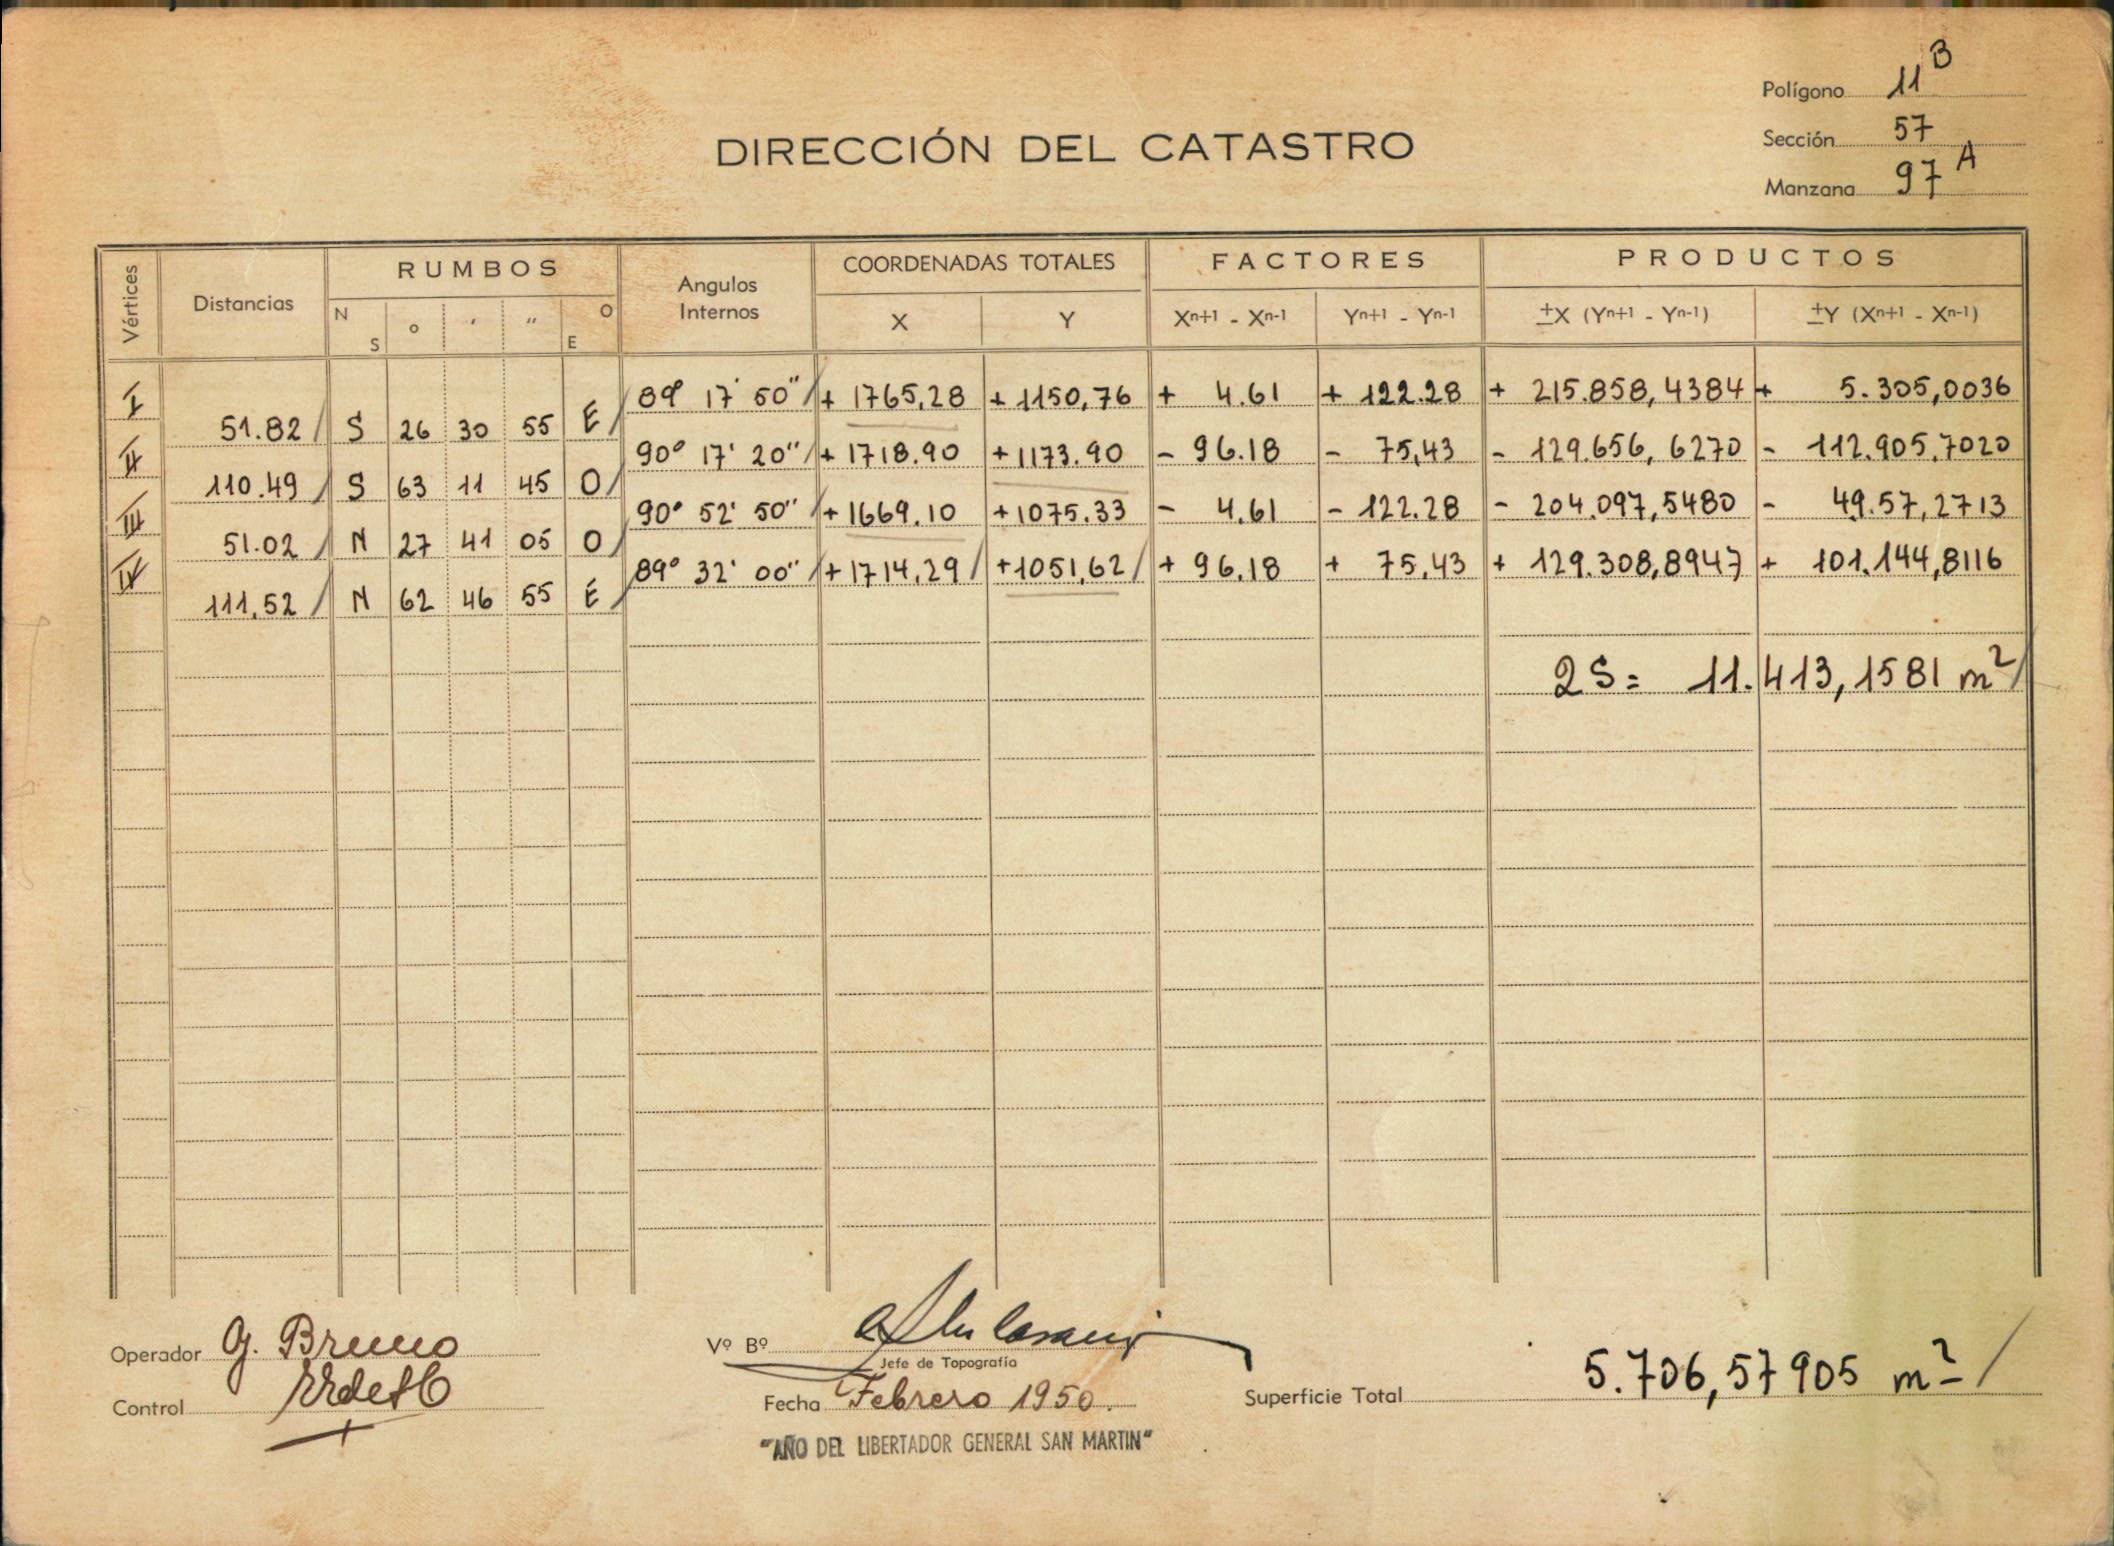 Polígono 11 B
Sección 57
Manzana 97 A
DIRECCIÓN DEL CATASTRO
Vértices Distancias RUMBOS Angulos Internos COORDENADAS TOTALES FACTORES PRODUCTOS
N S ° ' " O E X Y Xn+1 - Xn-1 Yn+1 - Yn-1 ±X (Yn+1 - Yn-1) ±Y (Xn+1 - Xn-1)
I 89° 17' 50" + 1765,28 + 1150,76 + 4.61 + 122.28 + 215.858,4384 + 5.305,0036
51.82 S 26 30 55 E
II 90° 17' 20" + 1718.90 + 1173.90 - 96.18 - 75,43 - 129.656,6270 - 112.905,7020
110.49 S 63 11 45 O
III 90° 52' 50" + 1669.10 + 1075.33 - 4,61 - 122.28 - 204.097,5480 - 49.57,2713
51.02 N 27 41 05 O
IV 89° 32' 00" + 1714,29 + 1051,62 + 96,18 + 75,43 + 129.308,8947 + 101.144,8116
111,52 N 62 46 55 E
2S= 11.413,1581 m²
Operador G. Bruno
Control
Vº Bº
Jefe de Topografía
Fecha Febrero 1950.
"AÑO DEL LIBERTADOR GENERAL SAN MARTIN"
Superficie Total 5.706,57905 m²